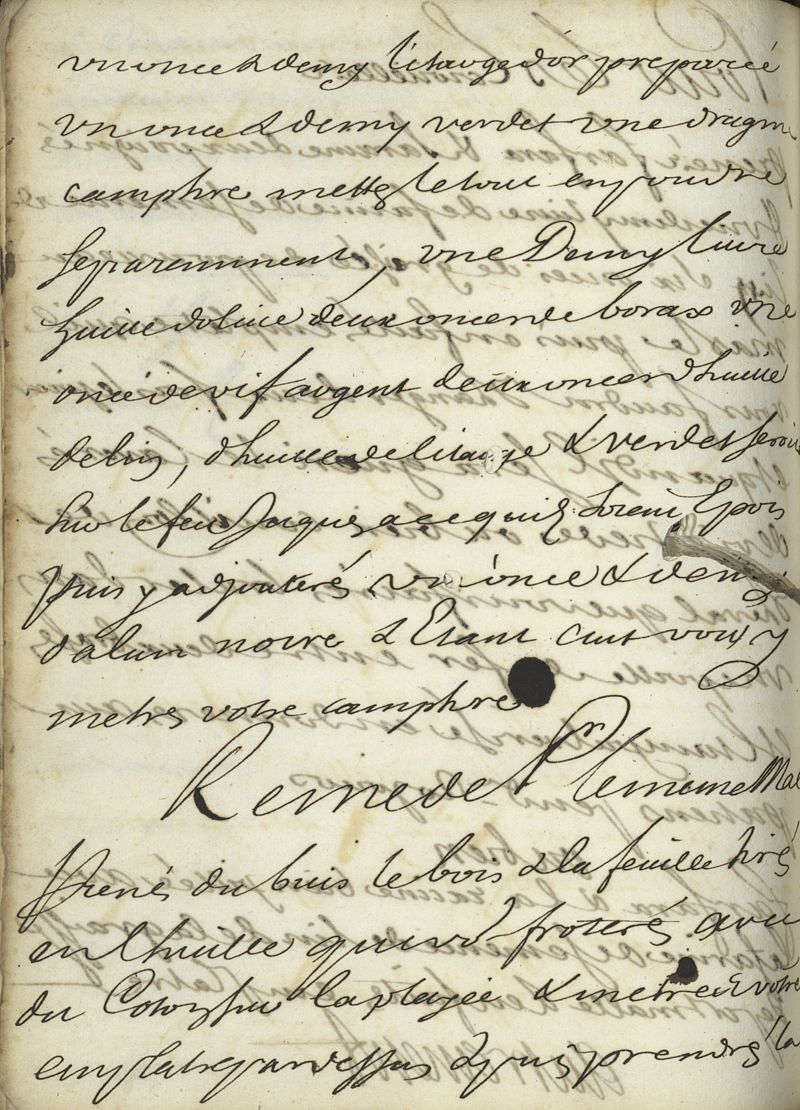 un once & demy litarge dor preparéé
un once & demy verdet une dragme
camphre mettes le tout en poudre
separemment, une Demy livre
huille dolive deux onces de borax une
once de vif argent deux onces dhuille
de lin, dhuille de litarge & verdet feroit
sur le feu jusques a ce quil soient Epois
puis y adjouterés un once & demy
dalun noire & Estant cuit vous y
metres votre camphre
Remede pr le mesme Mal
Prenés du buis le bois & la feuille tirés
en lhuille que vs froterés avec
du Coton sur la playée & metre votre
emplatre par dessus & puis prendrés la